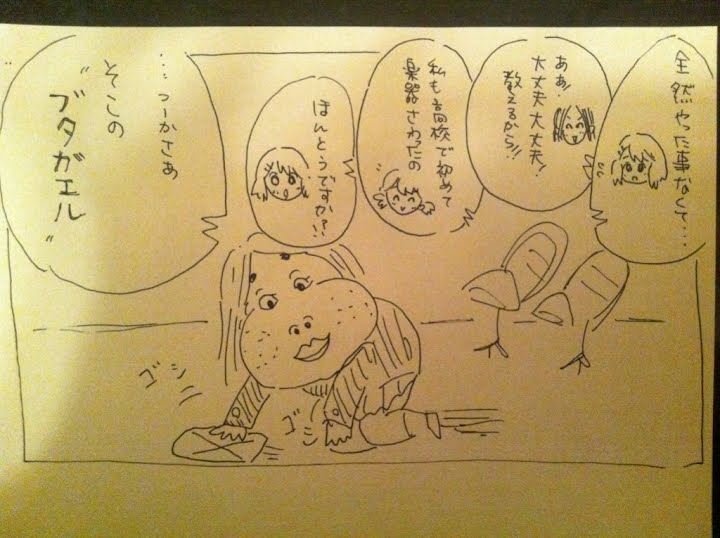 全然やった事なくて…
ああ！
大丈夫大丈夫！
教えるから！！
私も高校で初めて
楽器さわったの
ほんとうですか！？
…つーかさあ
そこの
"ブタガエル"
ゴシ
ゴシ